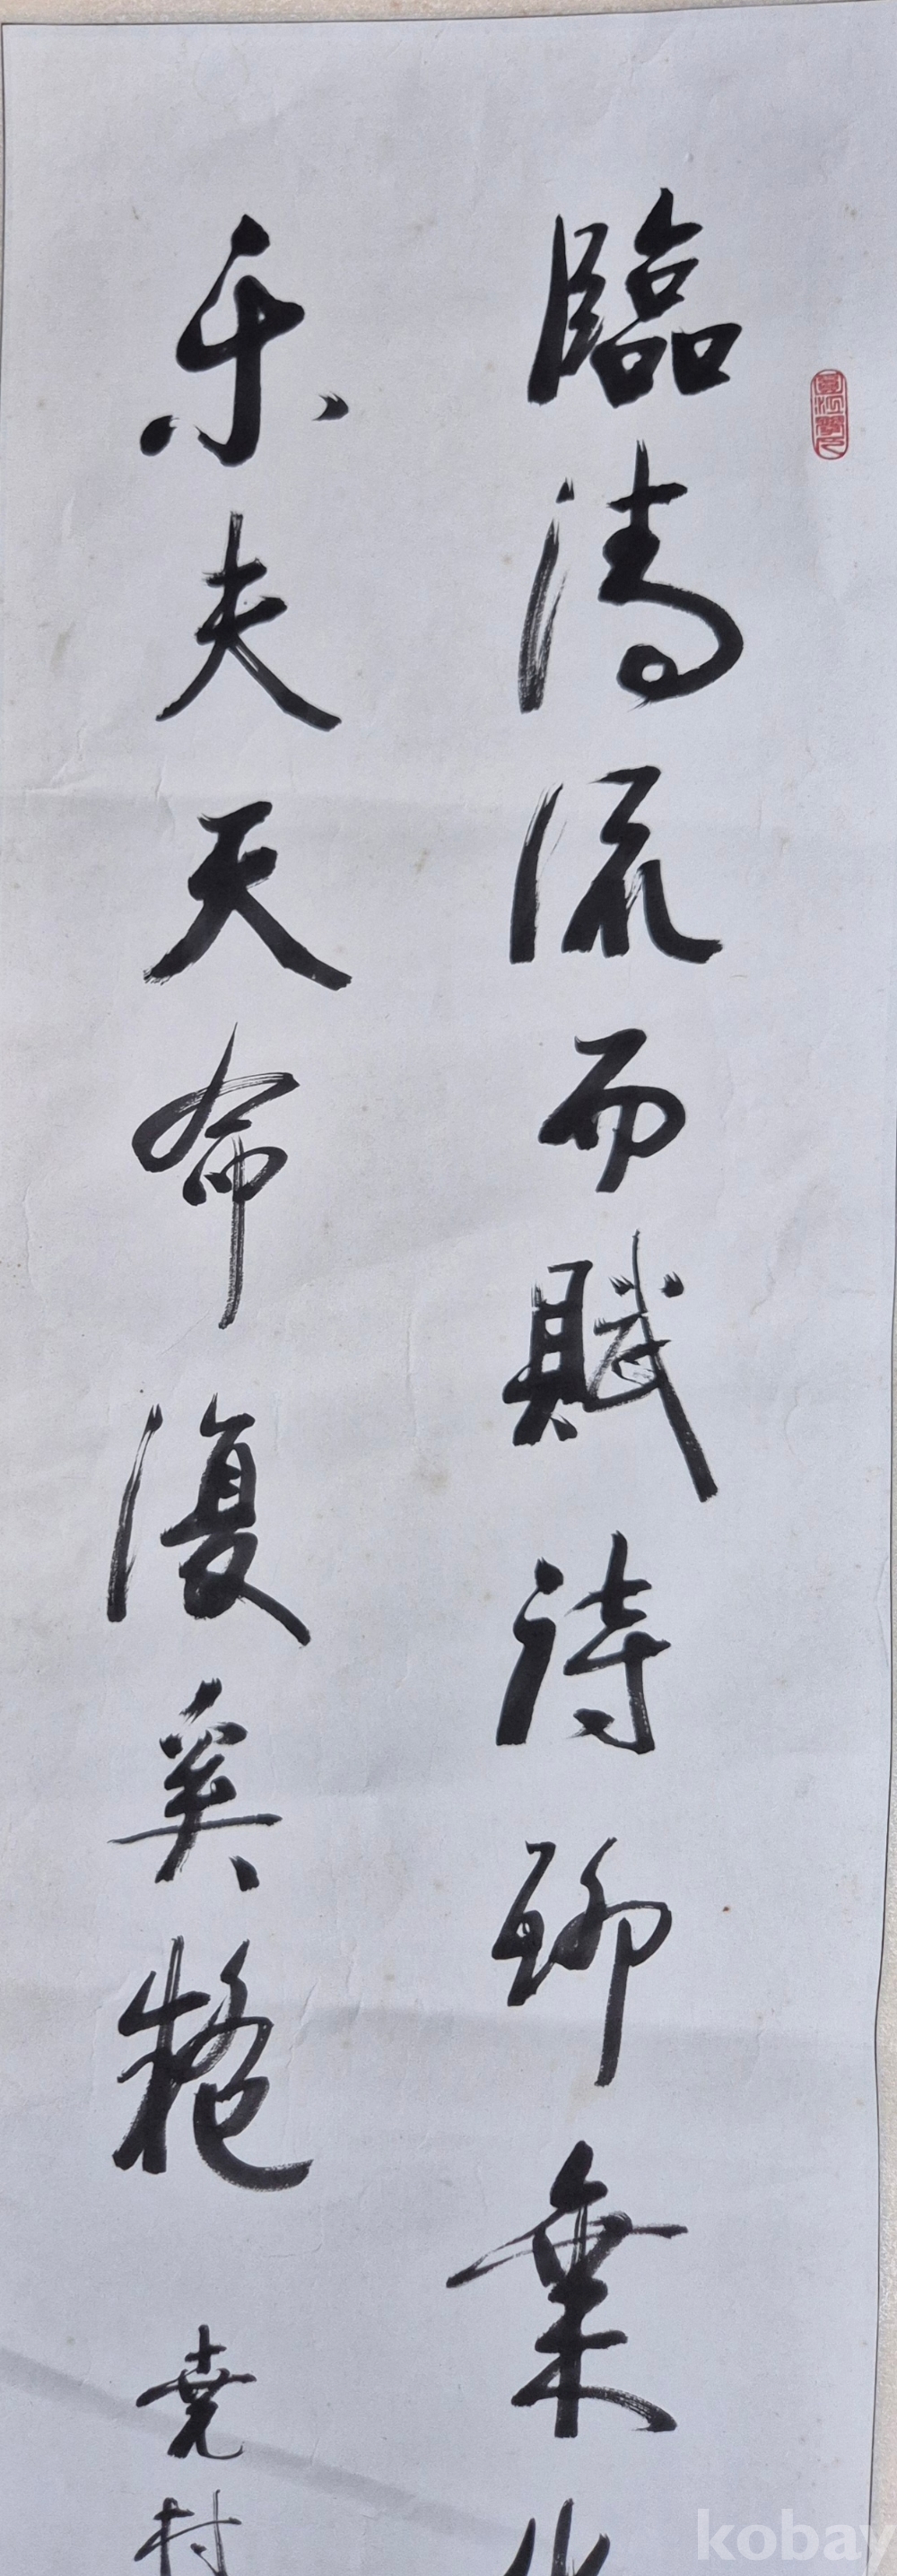 臨清流而賦詩聊乗化
樂夫天命復奚疑
堯村
kobay